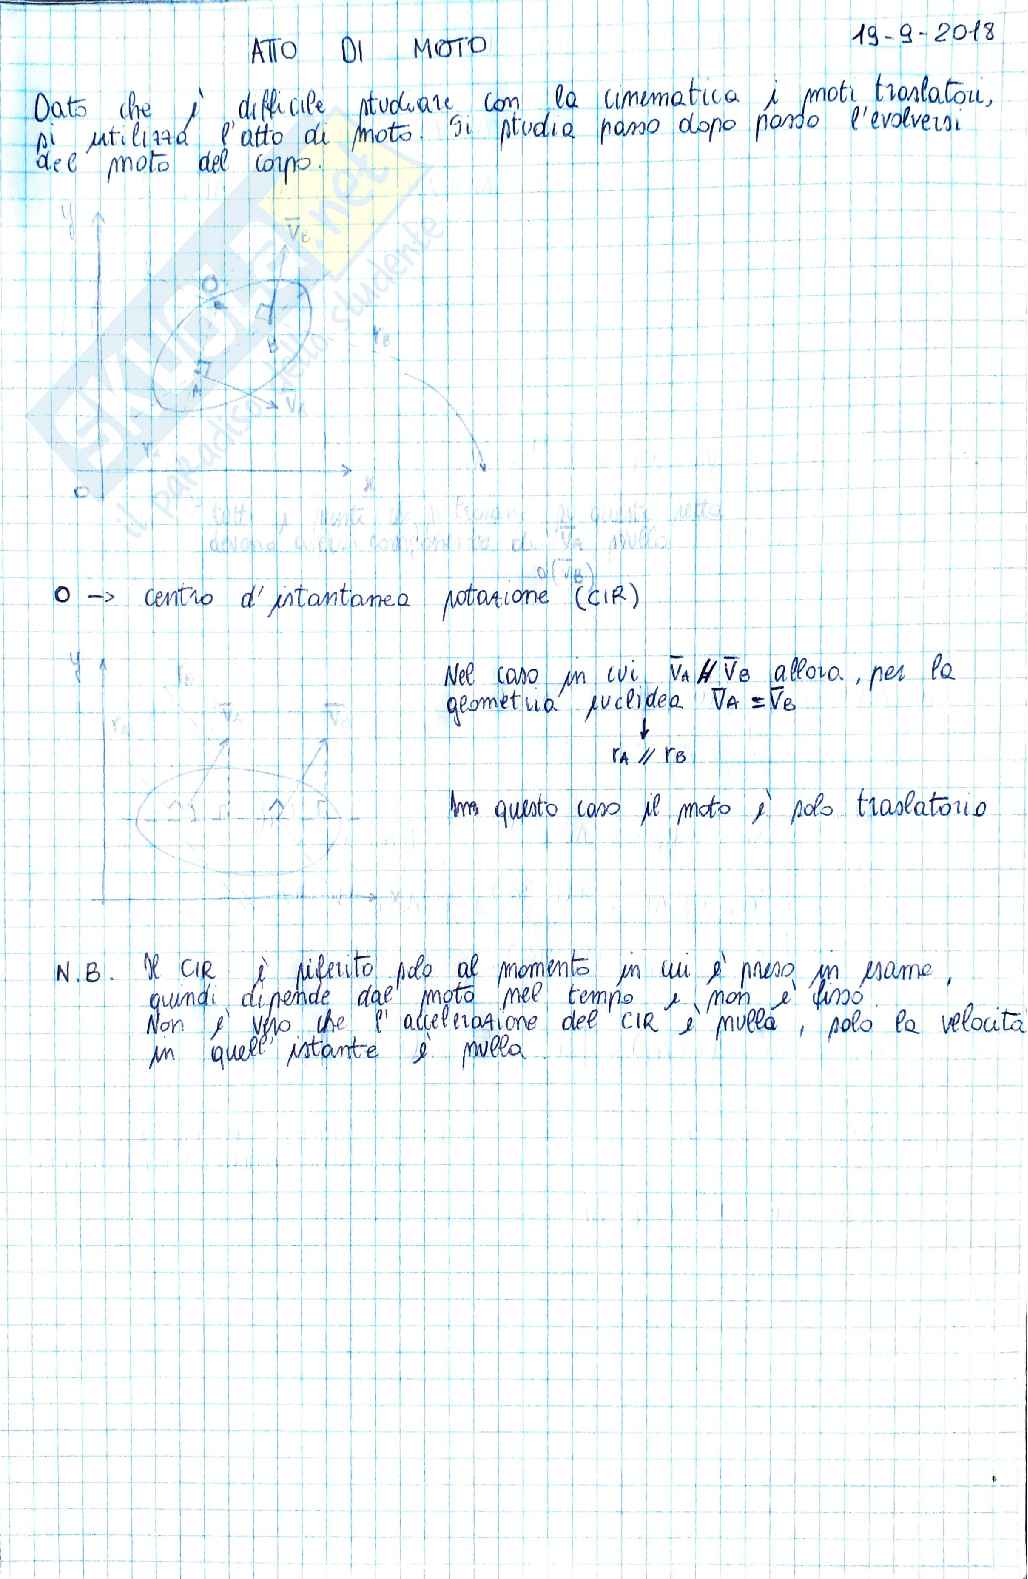 19-9-2018
ATTO DI MOTO
Dato che è difficile studiare con la cinematica i moti traslatori,
si utilizza l'atto di moto. Si studia passo dopo passo l'evolversi
del moto del corpo.
y
V̄B
O
B
rB
A
V̄A
O
x
SKUOLA.net
il paradiso dello studente
tutti i punti su questa retta
devono di V̄A nullo
o(V̄B)
O -> centro d'istantanea rotazione (CIR)
y
Nel caso in cui V̄A // V̄B allora, per la
geometria euclidea V̄A = V̄B
↓
rA // rB
V̄A
rA
In questo caso il moto è solo traslatorio
x
N.B. Il CIR è riferito solo al momento in cui è preso in esame,
quindi dipende dal moto nel tempo e non è fisso.
Non è vero che l'accelerazione del CIR è nulla, solo la velocità
in quell'istante è nulla